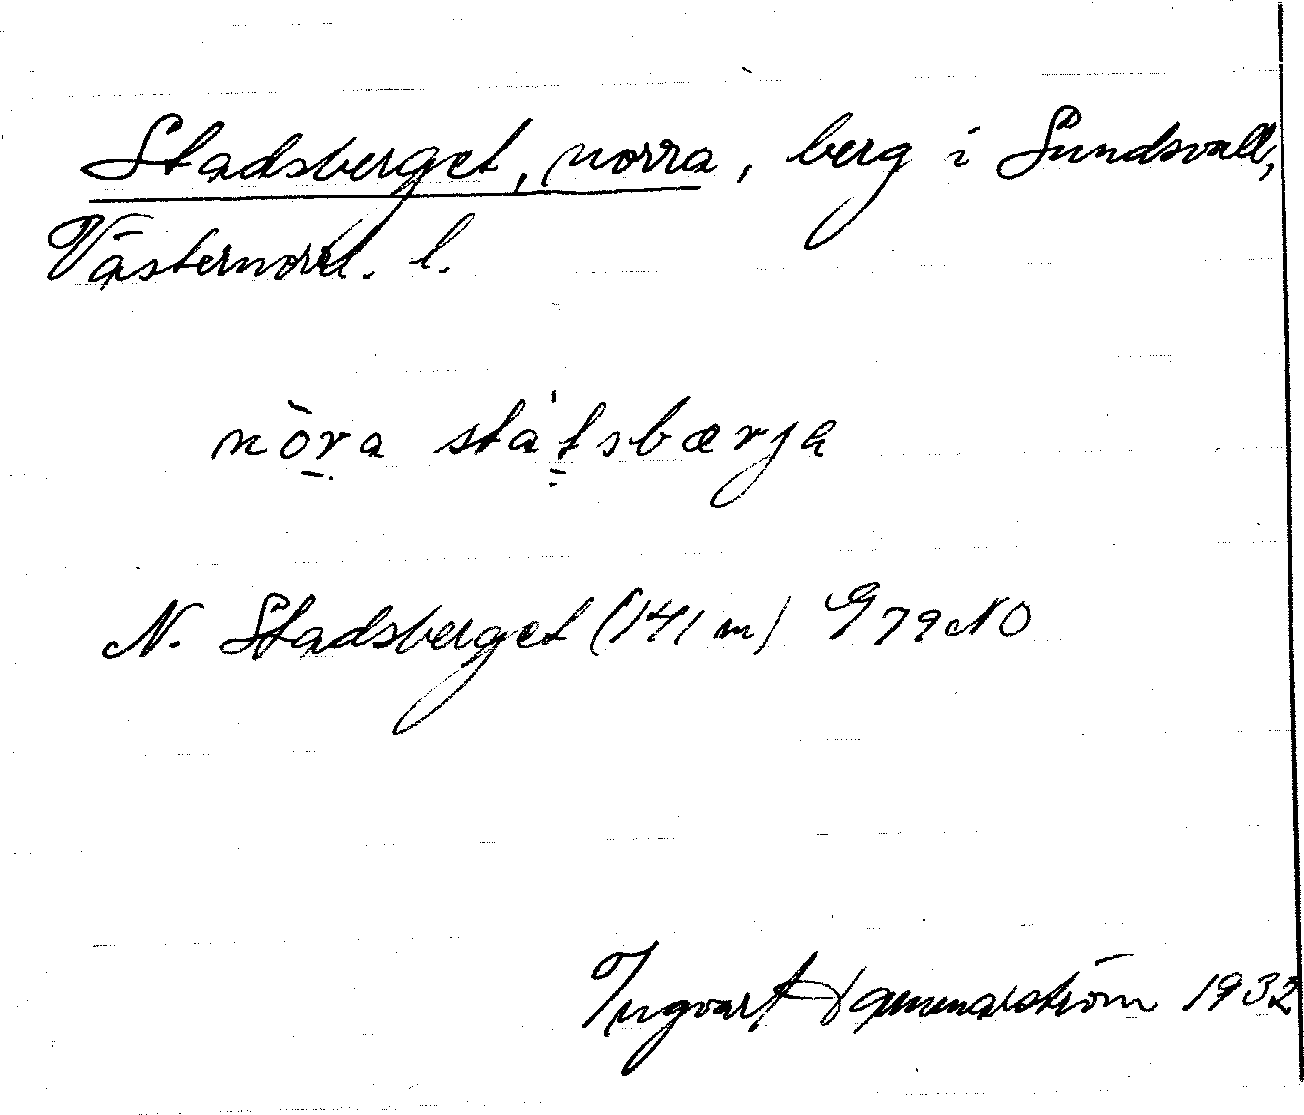 Stadsberget, norra, berg i Sundsvall,
Västernorrl. l.
nò̱ra stá't̳sbærja
N. Stadsberget (141 m) G79NO
Ingvart Hammarström 1932